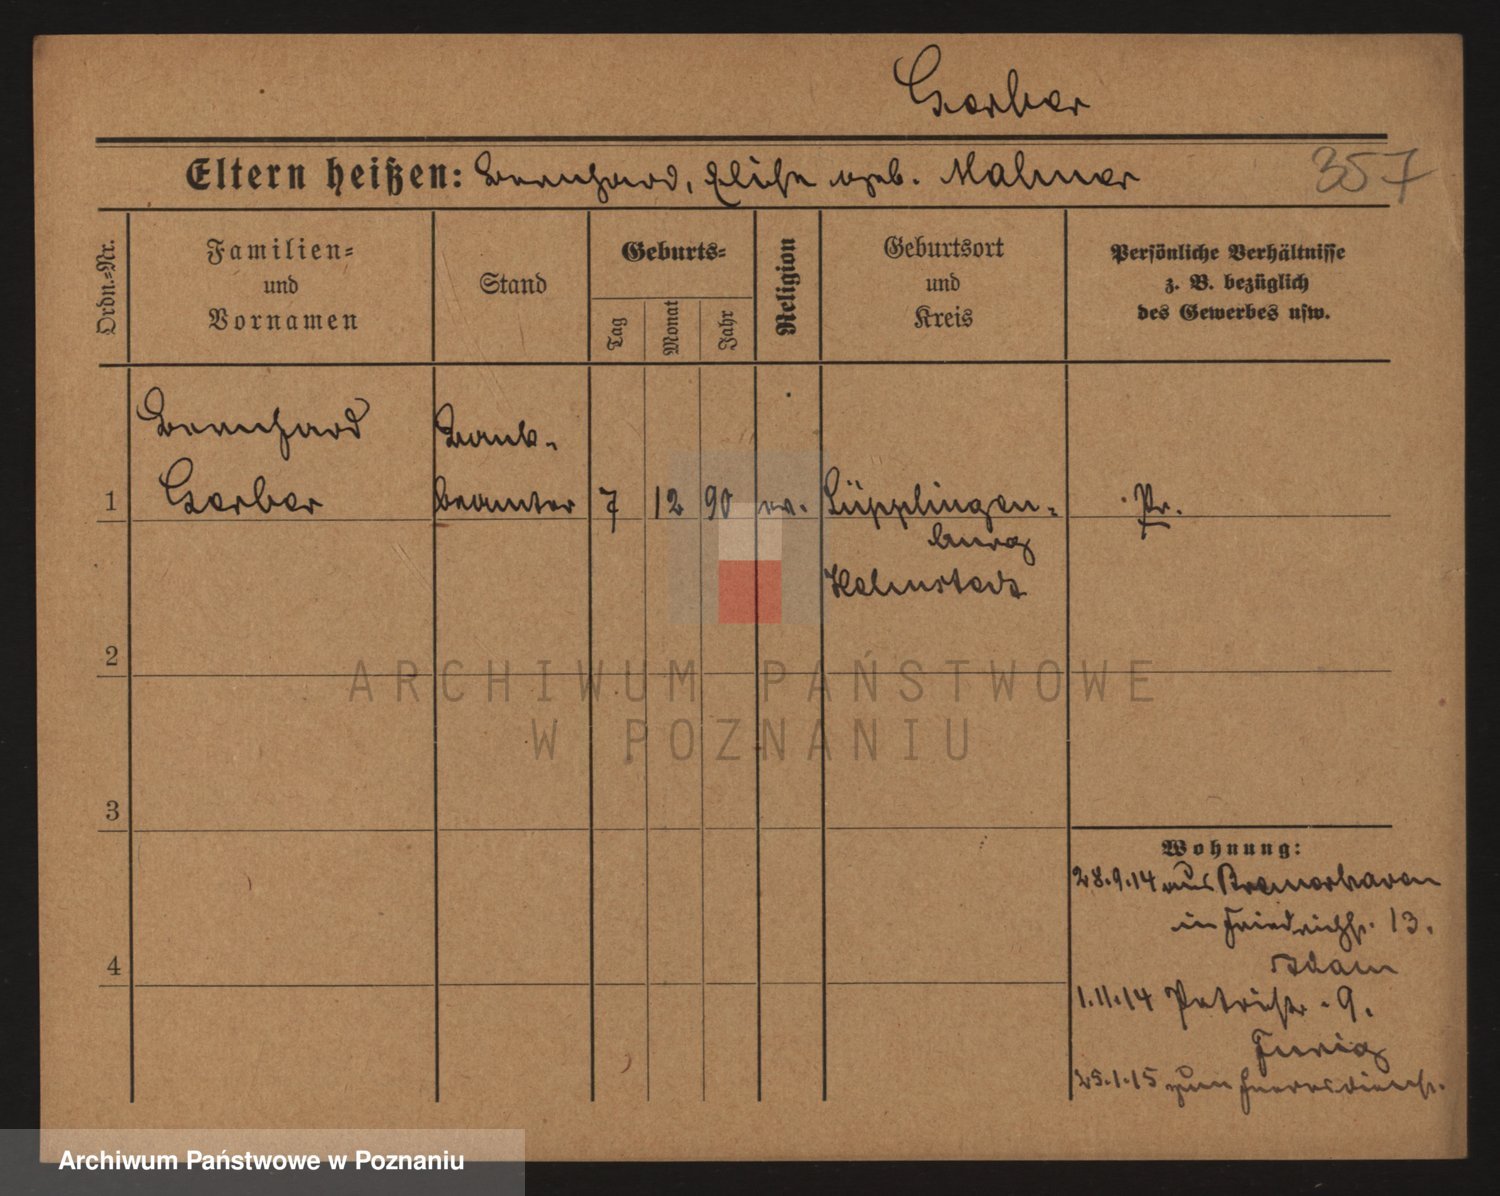 Gerber
Eltern heißen: Bernhard, Elise geb. Malmer
357
Ordn.=Nr.
Familien=
und
Vornamen
Stand
Geburts=
Tag
Monat
Jahr
Religion
Geburtsort
und
Kreis
Persönliche Verhältnisse
z. B. bezüglich
des Gewerbes usw.
Bernhard
Gerber
Bank-
beamter
1
7
12
90
ev.
Süpplingen=
burg
Helmstedt
Pr.
2
3
4
Wohnung:
28.9.14 aus Bremerhaven
in Friedrichstr. 13.
Adam
1.11.14 Patristr. 9.
25.1.15 zum Heeresdienst.
ARCHIWUM PAŃSTWOWE
W POZNANIU
Archiwum Państwowe w Poznaniu